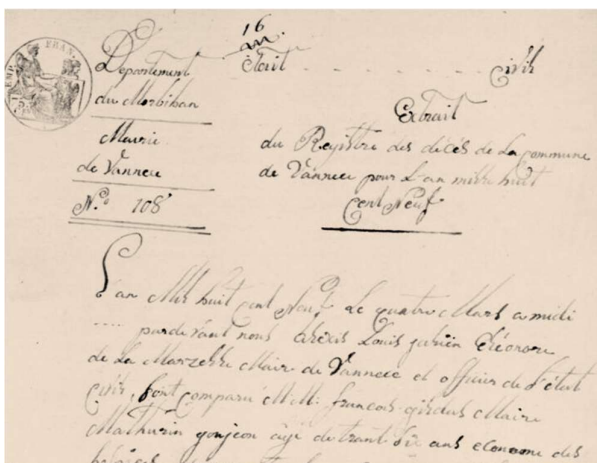 EMP. FRAN.
16
Département
du Morbihan
Etait - - - - - - Civil
Mairie
de Vannes
N.º 108
Extrait
du Registre des décés de La commune
de Vannes pour L'an mil huit
Cent Neuf
L'an Mil huit cent Neuf Le quatre Mars a midi
.... pardevant nous Alexis Louis Eléonore
de La Marzelle Maire de Vannes et officier de L'état
Civil, Sont comparu M.M. françois Maire
Mathurin goujeon âgé de trant Six ans econome des